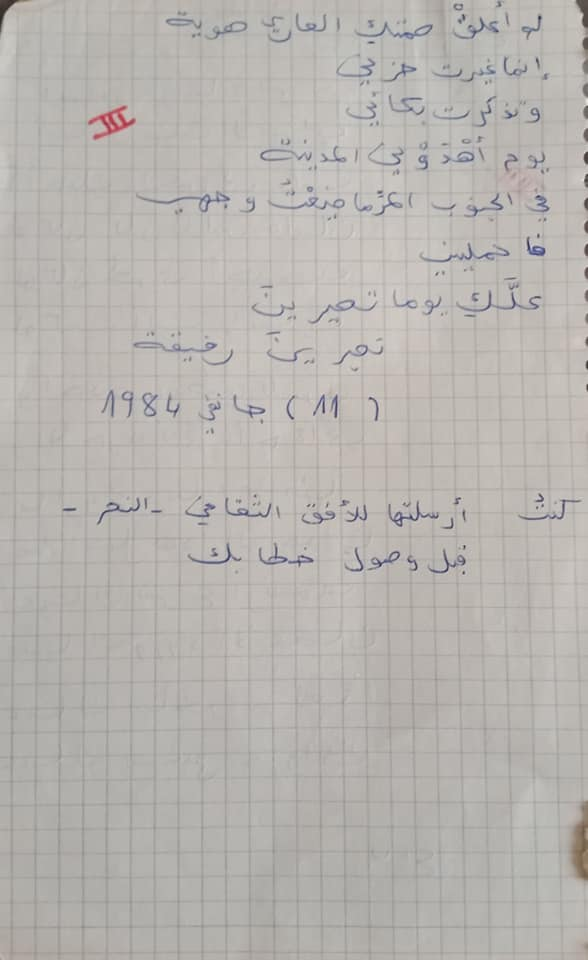 لو أعلقْ صمتكِ العاري هوية
إنما غيرت حزني
وتذكرت بكائي
III
يوم أهْدَوْني المدينة
في الجنوب المرّ ما ضيعْتُ وجهي
فاحمليني
علَّكِ يوما تصيرينَ
تصيرينَ رفيقة
(11) جانفي 1984
كنتُ أرسلتها للأفق الثقافي -النصر-
قبل وصول خطابك